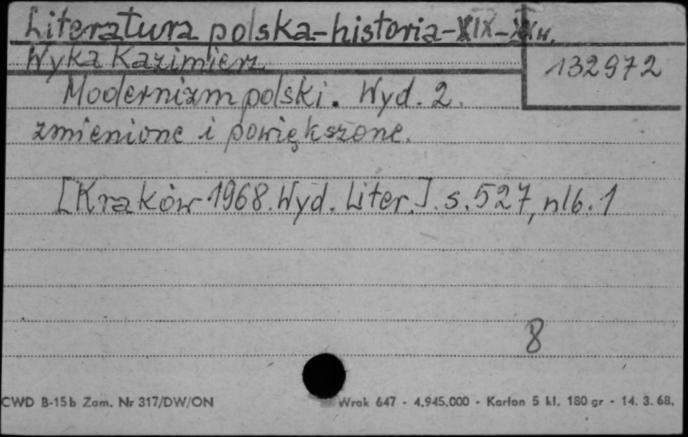 Literatura polska-historia-XIX-XXw.
Wyka Kazimierz
132972
Modernizm polski. Wyd. 2.
zmienione i powiększone.
[Kraków 1968. Wyd. Liter.]. s. 527, nlb. 1
8
CWD B-15b Zam. Nr 317/DW/ON
Wrak 647 - 4.945.000 - Karton 5 kl. 180 gr - 14. 3. 68.